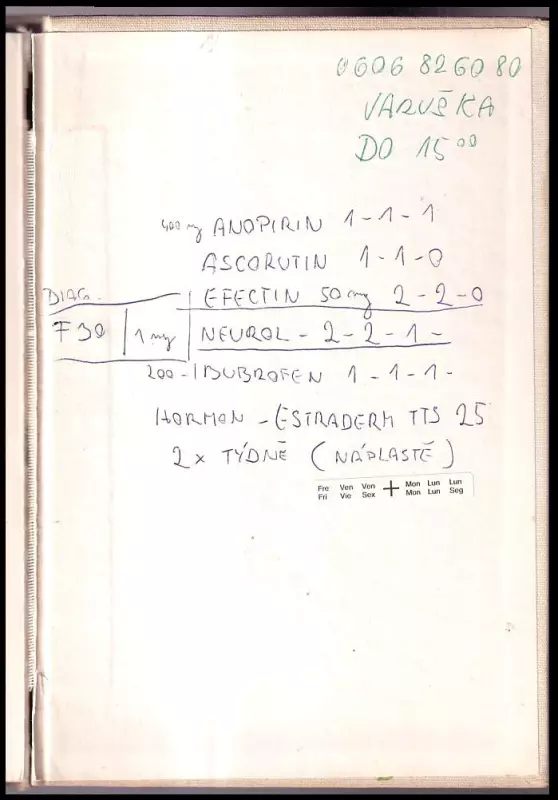 0606 826080
VARUŠKA
DO 15⁰⁰
400 mg ANOPIRIN 1-1-1
ASCORUTIN 1-1-0
DIAG. EFECTIN 50mg 2-2-0
F30 1 mg NEUROL - 2-2-1-
200-IBUBROFEN 1-1-1-
HORMON - ESTRADERM TTS 25
2x TÝDNĚ (NÁPLASTĚ)
Fre Ven Ven + Mon Lun Lun
Fri Vie Sex Mon Lun Seg